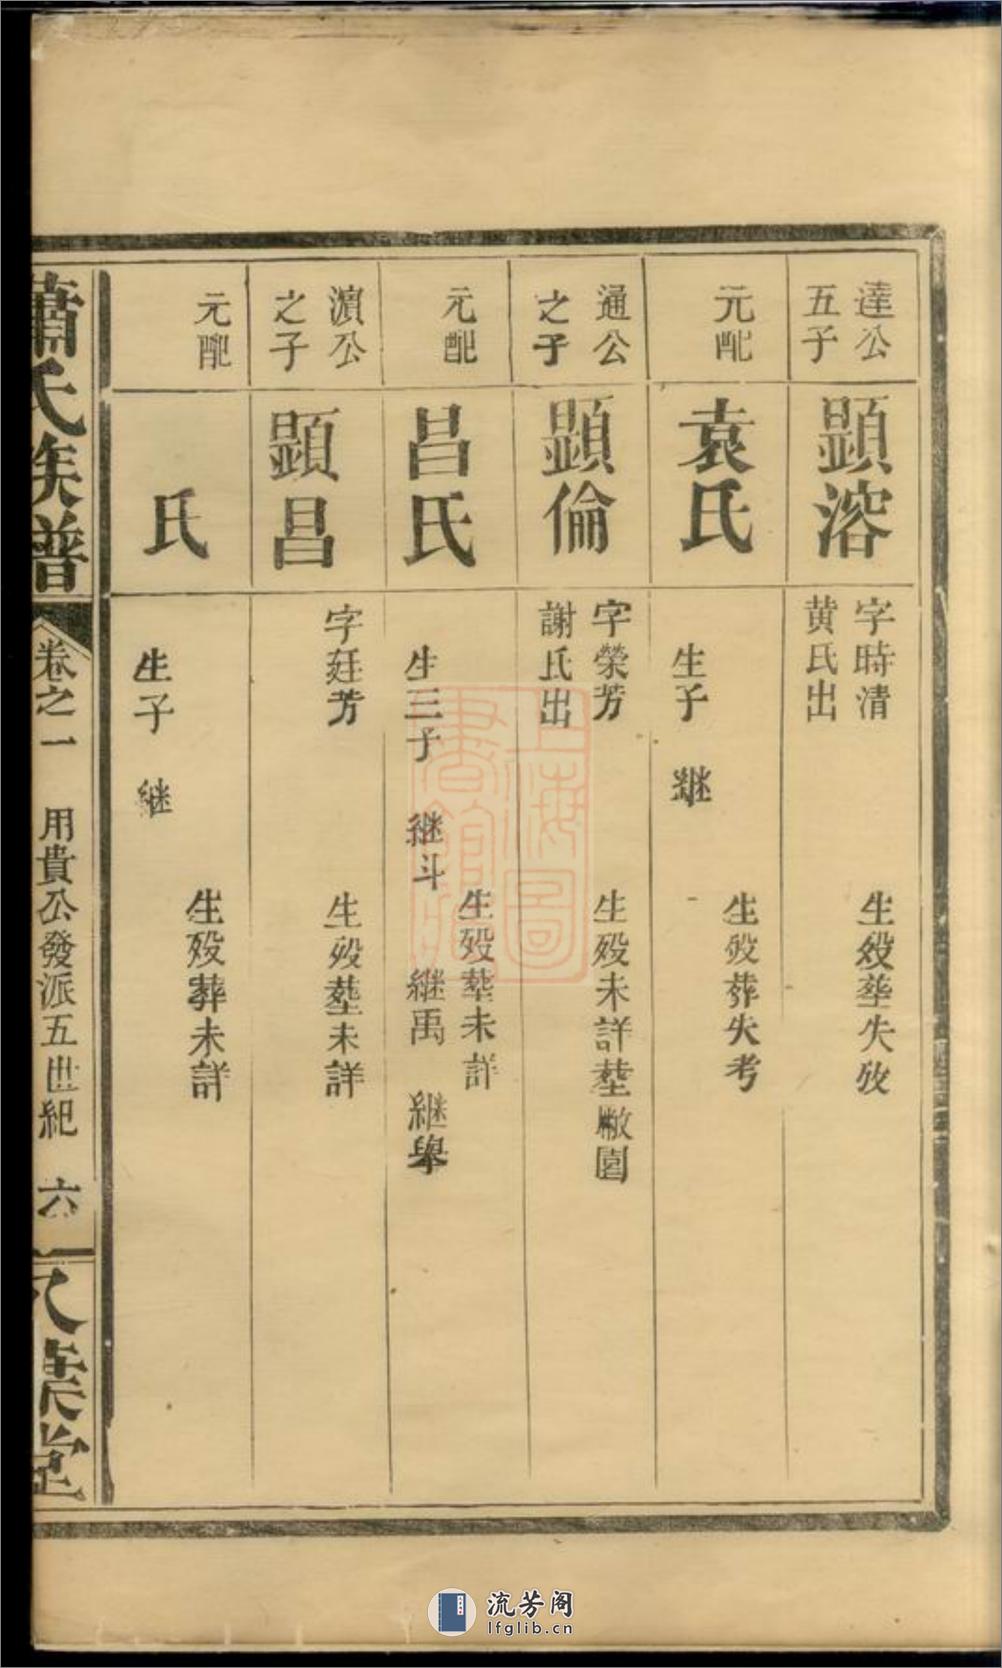 達公
五子
顕溶
字時清
黄氏出
生殁塟失攷
元配
袁氏
生子 継
生殁葬失考
通公
之子
顕倫
字榮芳
謝氏出
生殁未詳塟楓園
元配
昌氏
生三子 継斗 継禹 継舉
生殁塟未詳
濵公
之子
顕昌
字廷芳
生殁塟未詳
元配
氏
生子 継
生殁葬未詳
蕭氏族譜
卷之一 用貴公發派五世紀 六
八葉堂
上海圖
書館藏
流芳阁
lfglib.cn